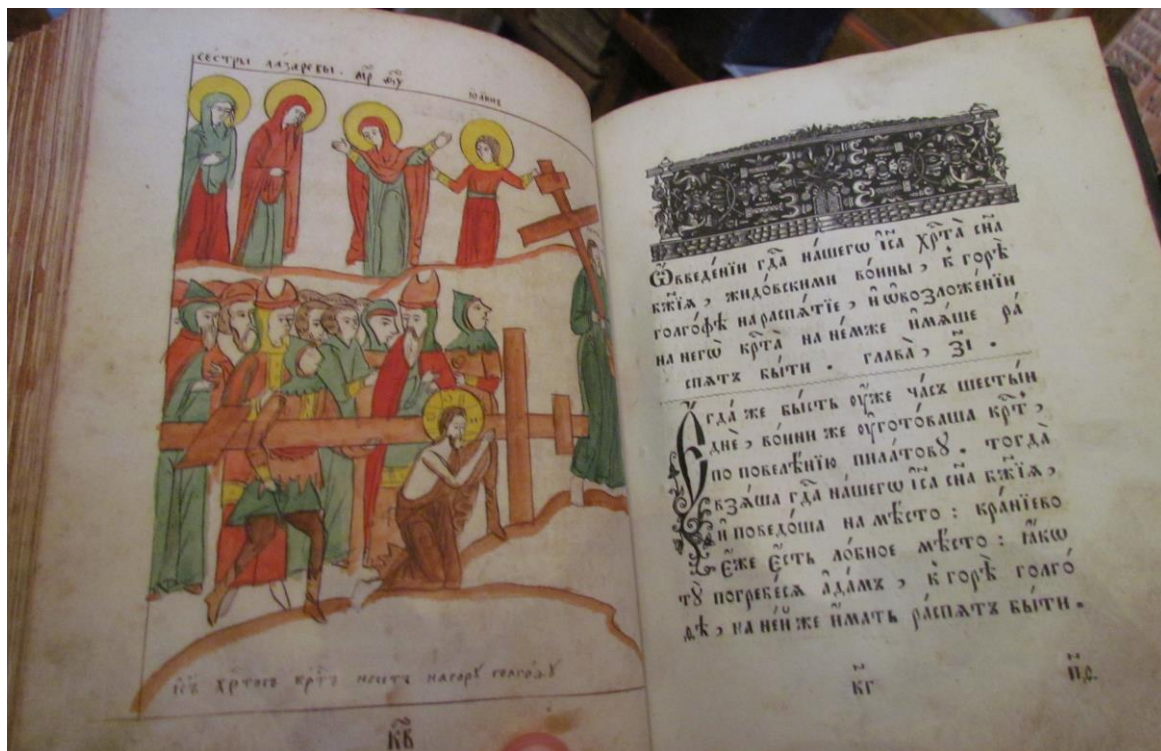 сестры лазаревы . м҃р ѳ҃у
іѡаннъ
і҃съ хр҃тосъ кр҃тъ несетъ нагору голгоѳу
к҃в
Ѽвведе́нїи гд҃а на́шегѡ і҃са хр҃та̀ сн҃а
бж҃їѧ , жидо́вскими во́ины , к̾ горѣ̀
голго́фѣ нараспѧ́тїе , и҆ ѡ҆возложе́нїи
на негѡ̀ кр҃та̀ на не́мже и҆мѧ́ше ра́
спѧтъ бы́ти . глава̀ , з҃і .
Е҆гда́ же бы́сть ᲂу҆́же ча́съ шесты́и
днѐ , во́ини же ᲂу҆гото́ваша кр҃тъ ,
по повелѣ́нїю пила́тову . тогда̀
взѧ́ша гд҃а на́шегѡ і҃са сн҃а бж҃їѧ ,
и҆ поведо́ша на мѣ́сто : кра́нїево
е҆́же е҆́сть ло́бное мѣ́сто : ꙗ҆́кѡ
тꙋ̀ погребе́сѧ а҆да́мъ , к̾ горѣ̀ голго́
ѳѣ , на не́й же и҆́мать ра́спѧтъ бы́ти .
к҃г